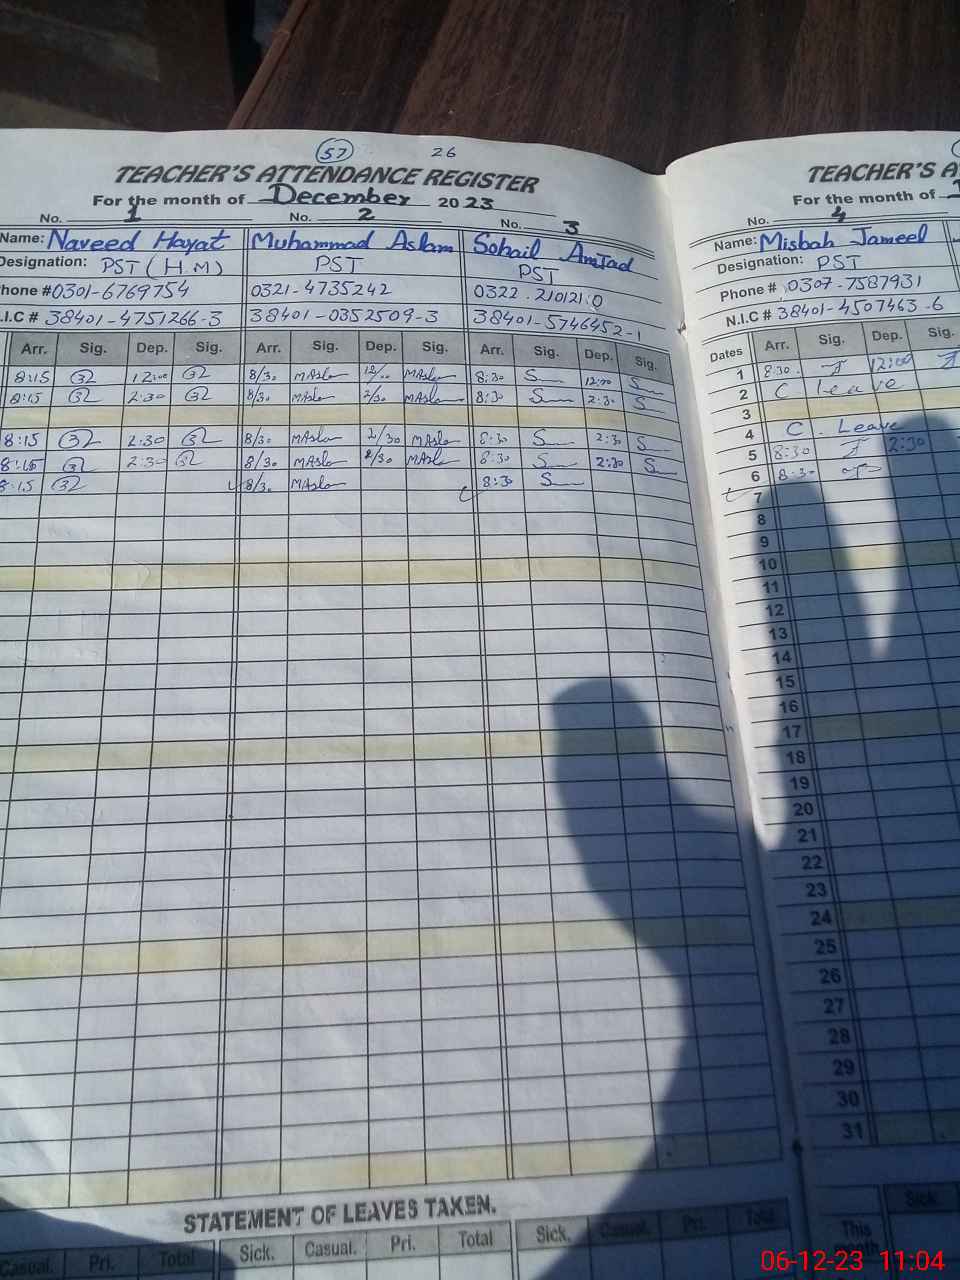 57 26
TEACHER'S ATTENDANCE REGISTER
For the month of December 2023
No. 1 No. 2 No. 3
Name: Naveed Hayat Muhammad Aslam Sohail Amjad
Designation: PST (H.M) PST PST
Phone # 0301-6769754 0321-4735242 0322-2101210
.I.C # 38401-4751266-3 38401-0352509-3 38401-5746452-1
Arr. Sig. Dep. Sig. Arr. Sig. Dep. Sig. Arr. Sig. Dep. Sig.
8:15 12:00 8/30 MAslam 12/.. MAslam 8:30 12:30
8:15 2:30 8/30 MAslam 2/30 MAslam 8:30 2:30
8:15 2:30 8/30 MAslam 2/30 MAslam 8:30 2:30
8:15 2:30 8/30 MAslam 2/30 MAslam 8:30 2:30
8:15 8/30 MAslam 8:30
STATEMENT OF LEAVES TAKEN.
Casual. Pri. Total Sick. Casual. Pri. Total Sick. Casual. Pri. Total
TEACHER'S A
For the month of
No. 4
Name: Misbah Jameel
Designation: PST
Phone # 0307-7587931
N.I.C # 38401-4507463-6
Dates Arr. Sig. Dep. Sig.
1 8:30 12:00
2 C leave
3
4 C. Leave
5 8:30 2:30
6 8:30
7
8
9
10
11
12
13
14
15
16
17
18
19
20
21
22
23
24
25
26
27
28
29
30
31
Sick.
This
month
06-12-23 11:04